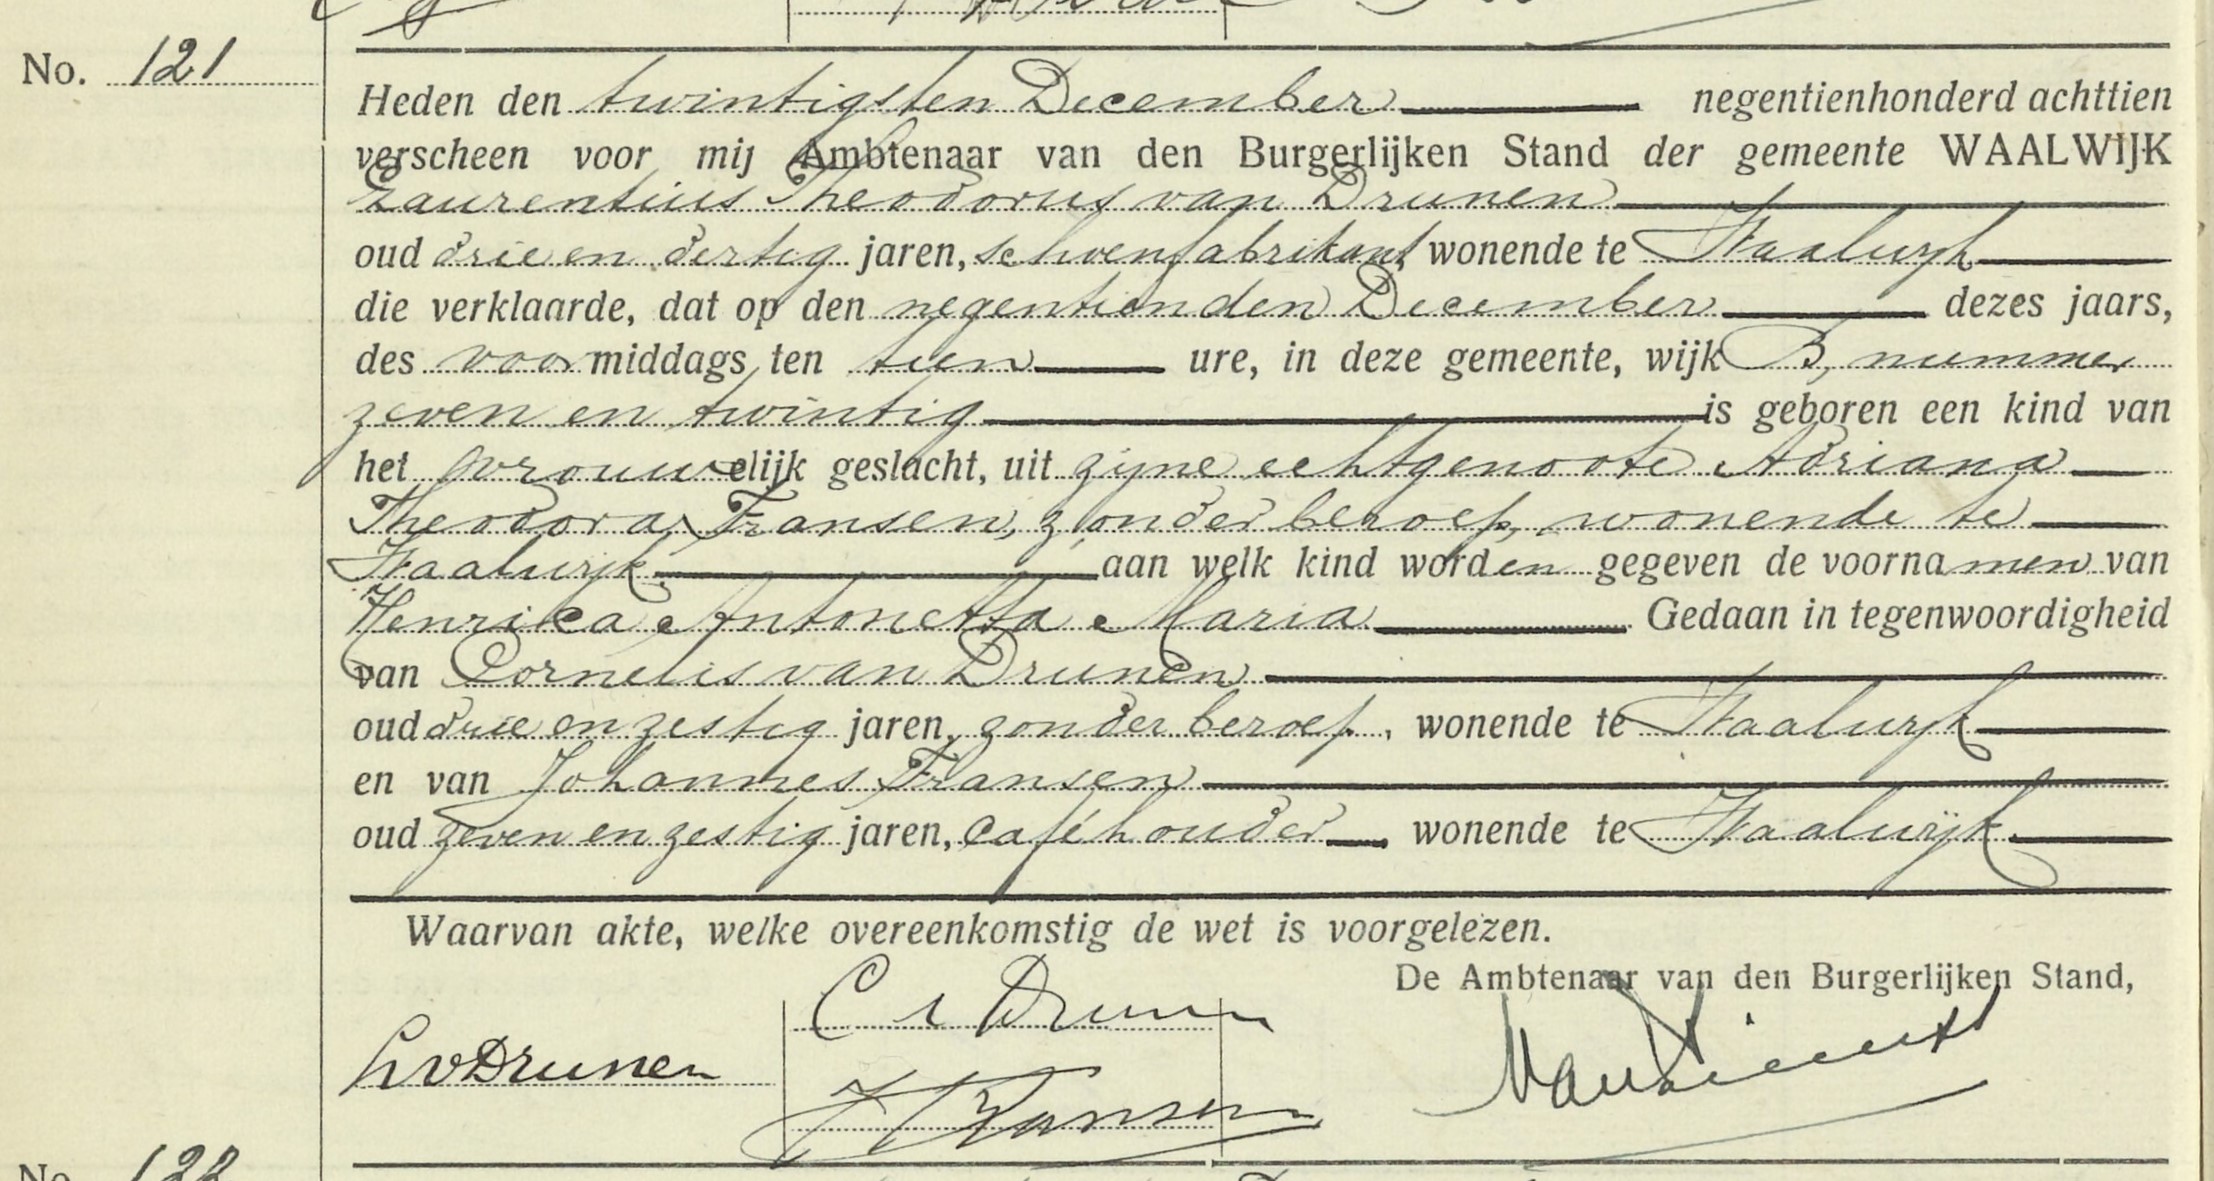 No. 121
Heden den twintigsten December negentienhonderd achttien
verscheen voor mij Ambtenaar van den Burgerlijken Stand der gemeente WAALWIJK
Laurentius Theodorus van Drunen
oud drie en dertig jaren, schoenfabrikant, wonende te Waalwijk
die verklaarde, dat op den negentienden December dezes jaars,
des voormiddags ten tien ure, in deze gemeente, wijk B, nummer
zeven en twintig is geboren een kind van
het vrouwelijk geslacht, uit zijne echtgenoote Adriana
Theodora Fransen, zonder beroep, wonende te
Waalwijk aan welk kind worden gegeven de voornamen van
Henrica Antonetta Maria Gedaan in tegenwoordigheid
van Cornelis van Drunen
oud drie en zestig jaren, zonder beroep, wonende te Waalwijk
en van Johannes Fransen
oud zeven en zestig jaren, caféhouder, wonende te Waalwijk
Waarvan akte, welke overeenkomstig de wet is voorgelezen.
De Ambtenaar van den Burgerlijken Stand,
C v Drunen
L v Drunen
J Fransen
No. 122